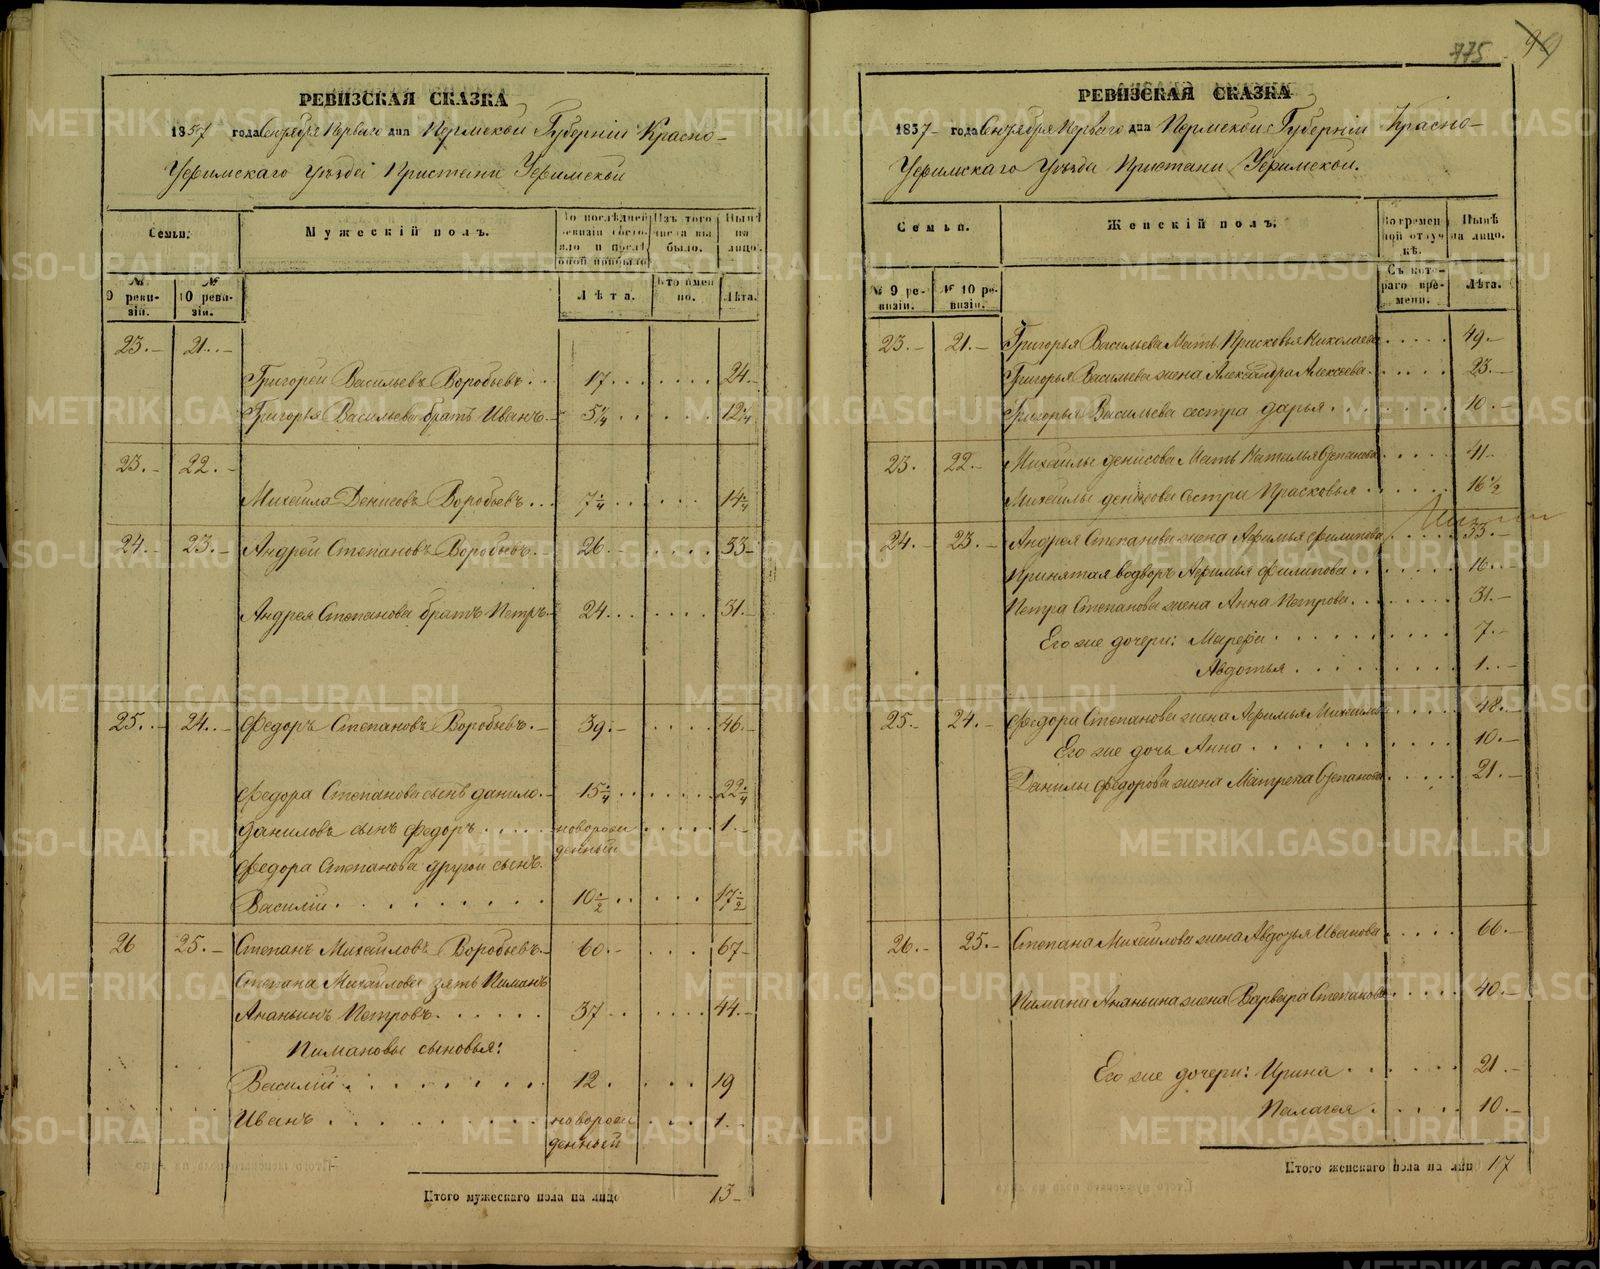 РЕВИЗСКАЯ СКАЗКА
1857 года Сентября Перваго дня Пермской Губерніи Красно-
Уфимскаго Уѣзда Пристани Уфимской
Семьи.
Мужескій полъ.
По послѣдней ревизіи состояло и послѣ оной прибыло
Изъ того числа выбыло.
Нынѣ на лицо.
№ 9 ревизіи.
№ 10 ревизіи.
Лѣта.
Кто именно.
Лѣта.
23.- 21.-
Григорей Васильевъ Воробьевъ.. 17... 24.-
Григорья Васильева братъ Иванъ.- 5 1/4 12 1/4
23.- 22.-
Михайла Денисовъ Воробьевъ... 7 1/4 14 1/4
24.- 23.- Андрей Степановъ Воробьевъ.- 26.- 33-
Андрея Степанова братъ Петръ.- 24... 31.-
25.- 24.- Федоръ Степановъ Воробьевъ.- 39.- 46.-
Федора Степанова сынъ Данило.- 15 1/4 22 1/4
Даниловъ сынъ Федоръ.... новорожденный 1.-
Федора Степанова другой сынъ.
Василій. 10 1/2 17 1/2
26 25.- Степанъ Михайловъ Воробьевъ.- 60.- 67-
Степана Михайлова зять Пиманъ
Ананьинъ Петровъ. 37.. 44.-
Пимановы сыновья:
Василій 12. 19
Иванъ новорожденный 1.-
Итого мужескаго пола на лицо 13-
775
99
РЕВИЗСКАЯ СКАЗКА
1857 года Сентября Перваго дня Пермской Губерніи Красно-
Уфимскаго Уѣзда Пристани Уфимской.
Семьи.
Женскій полъ.
Во временной отлучкѣ.
Нынѣ на лицо.
№ 9 ревизіи.
№ 10 ревизіи.
Съ котораго времени.
Лѣта.
23.- 21.- Григорья Васильева Мать Прасковья Николаева 49.-
Григорья Васильева жена Александра Алексеева. 23.-
Григорья Васильева сестра Дарья. 10.-
23. 22.- Михайлы Денисова Мать Наталья Степанова 41-
Михайлы Денисова сестра Прасковья 16 1/2
24.- 23.- Андрея Степанова жена Афимья Филипова 33.-
Принятая водворъ Афимья Филипова 16...
Петра Степанова жена Анна Петрова. 31.-
Его же дочери: Марефа 7.-
Авдотья. 1..-
25.- 24.- Федора Степанова жена Афимья Михайлова 48.-
Его же дочь Анна 10.-
Данилы Федорова жена Матрена Степанова 21.-
26.- 25.- Степана Михайлова жена Авдотья Иванова 66.-
Пимана Ананьина жена Варвара Степанова 40.-
Его же дочери: Ирина 21.-
Палагея 10.-
Итого женскаго пола на лицо 17
METRIKI.GASO-URAL.RU